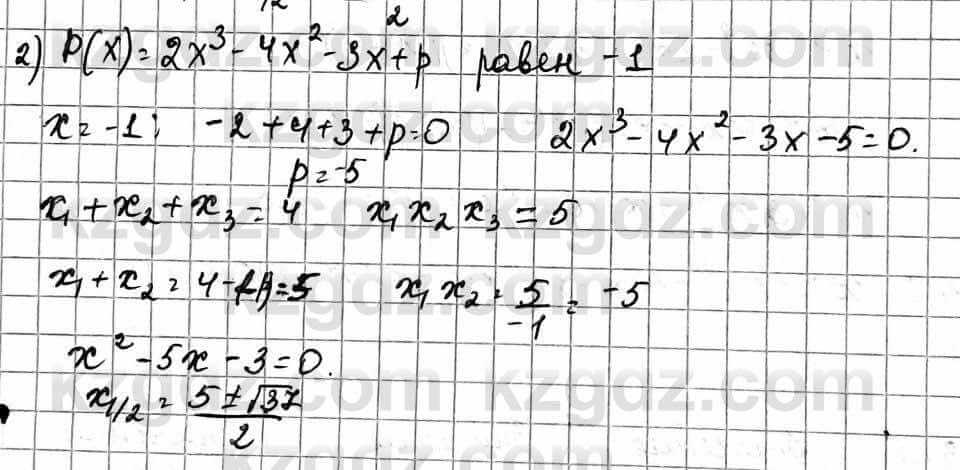 2) P(x)=2x³-4x²-3x+p равен -1
x=-1; -2+4+3+p=0 2x³-4x²-3x-5=0.
p=-5
x₁+x₂+x₃=4 x₁x₂x₃=5
x₁+x₂=4-(-1)=5 x₁x₂=5/-1=-5
x²-5x-3=0.
x₁/₂=(5±√37)/2
kzgdz.com